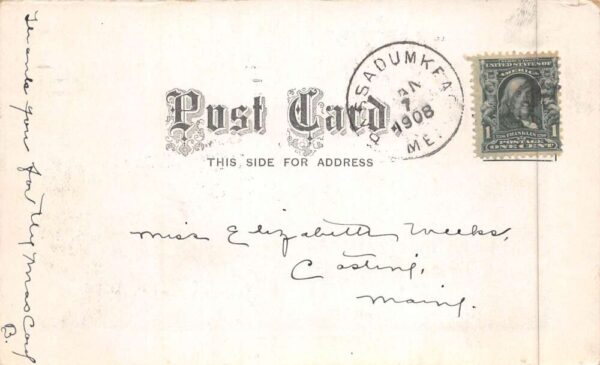 Post Card
THIS SIDE FOR ADDRESS
PASSADUMKEAG
JAN
7
1908
ME.
UNITED STATES OF
AMERICA
1 1
FRANKLIN
POSTAGE
ONE CENT
Miss Elizabeth Weeks,
Castine,
Maine.
Thank you for My Xmas Card
B.